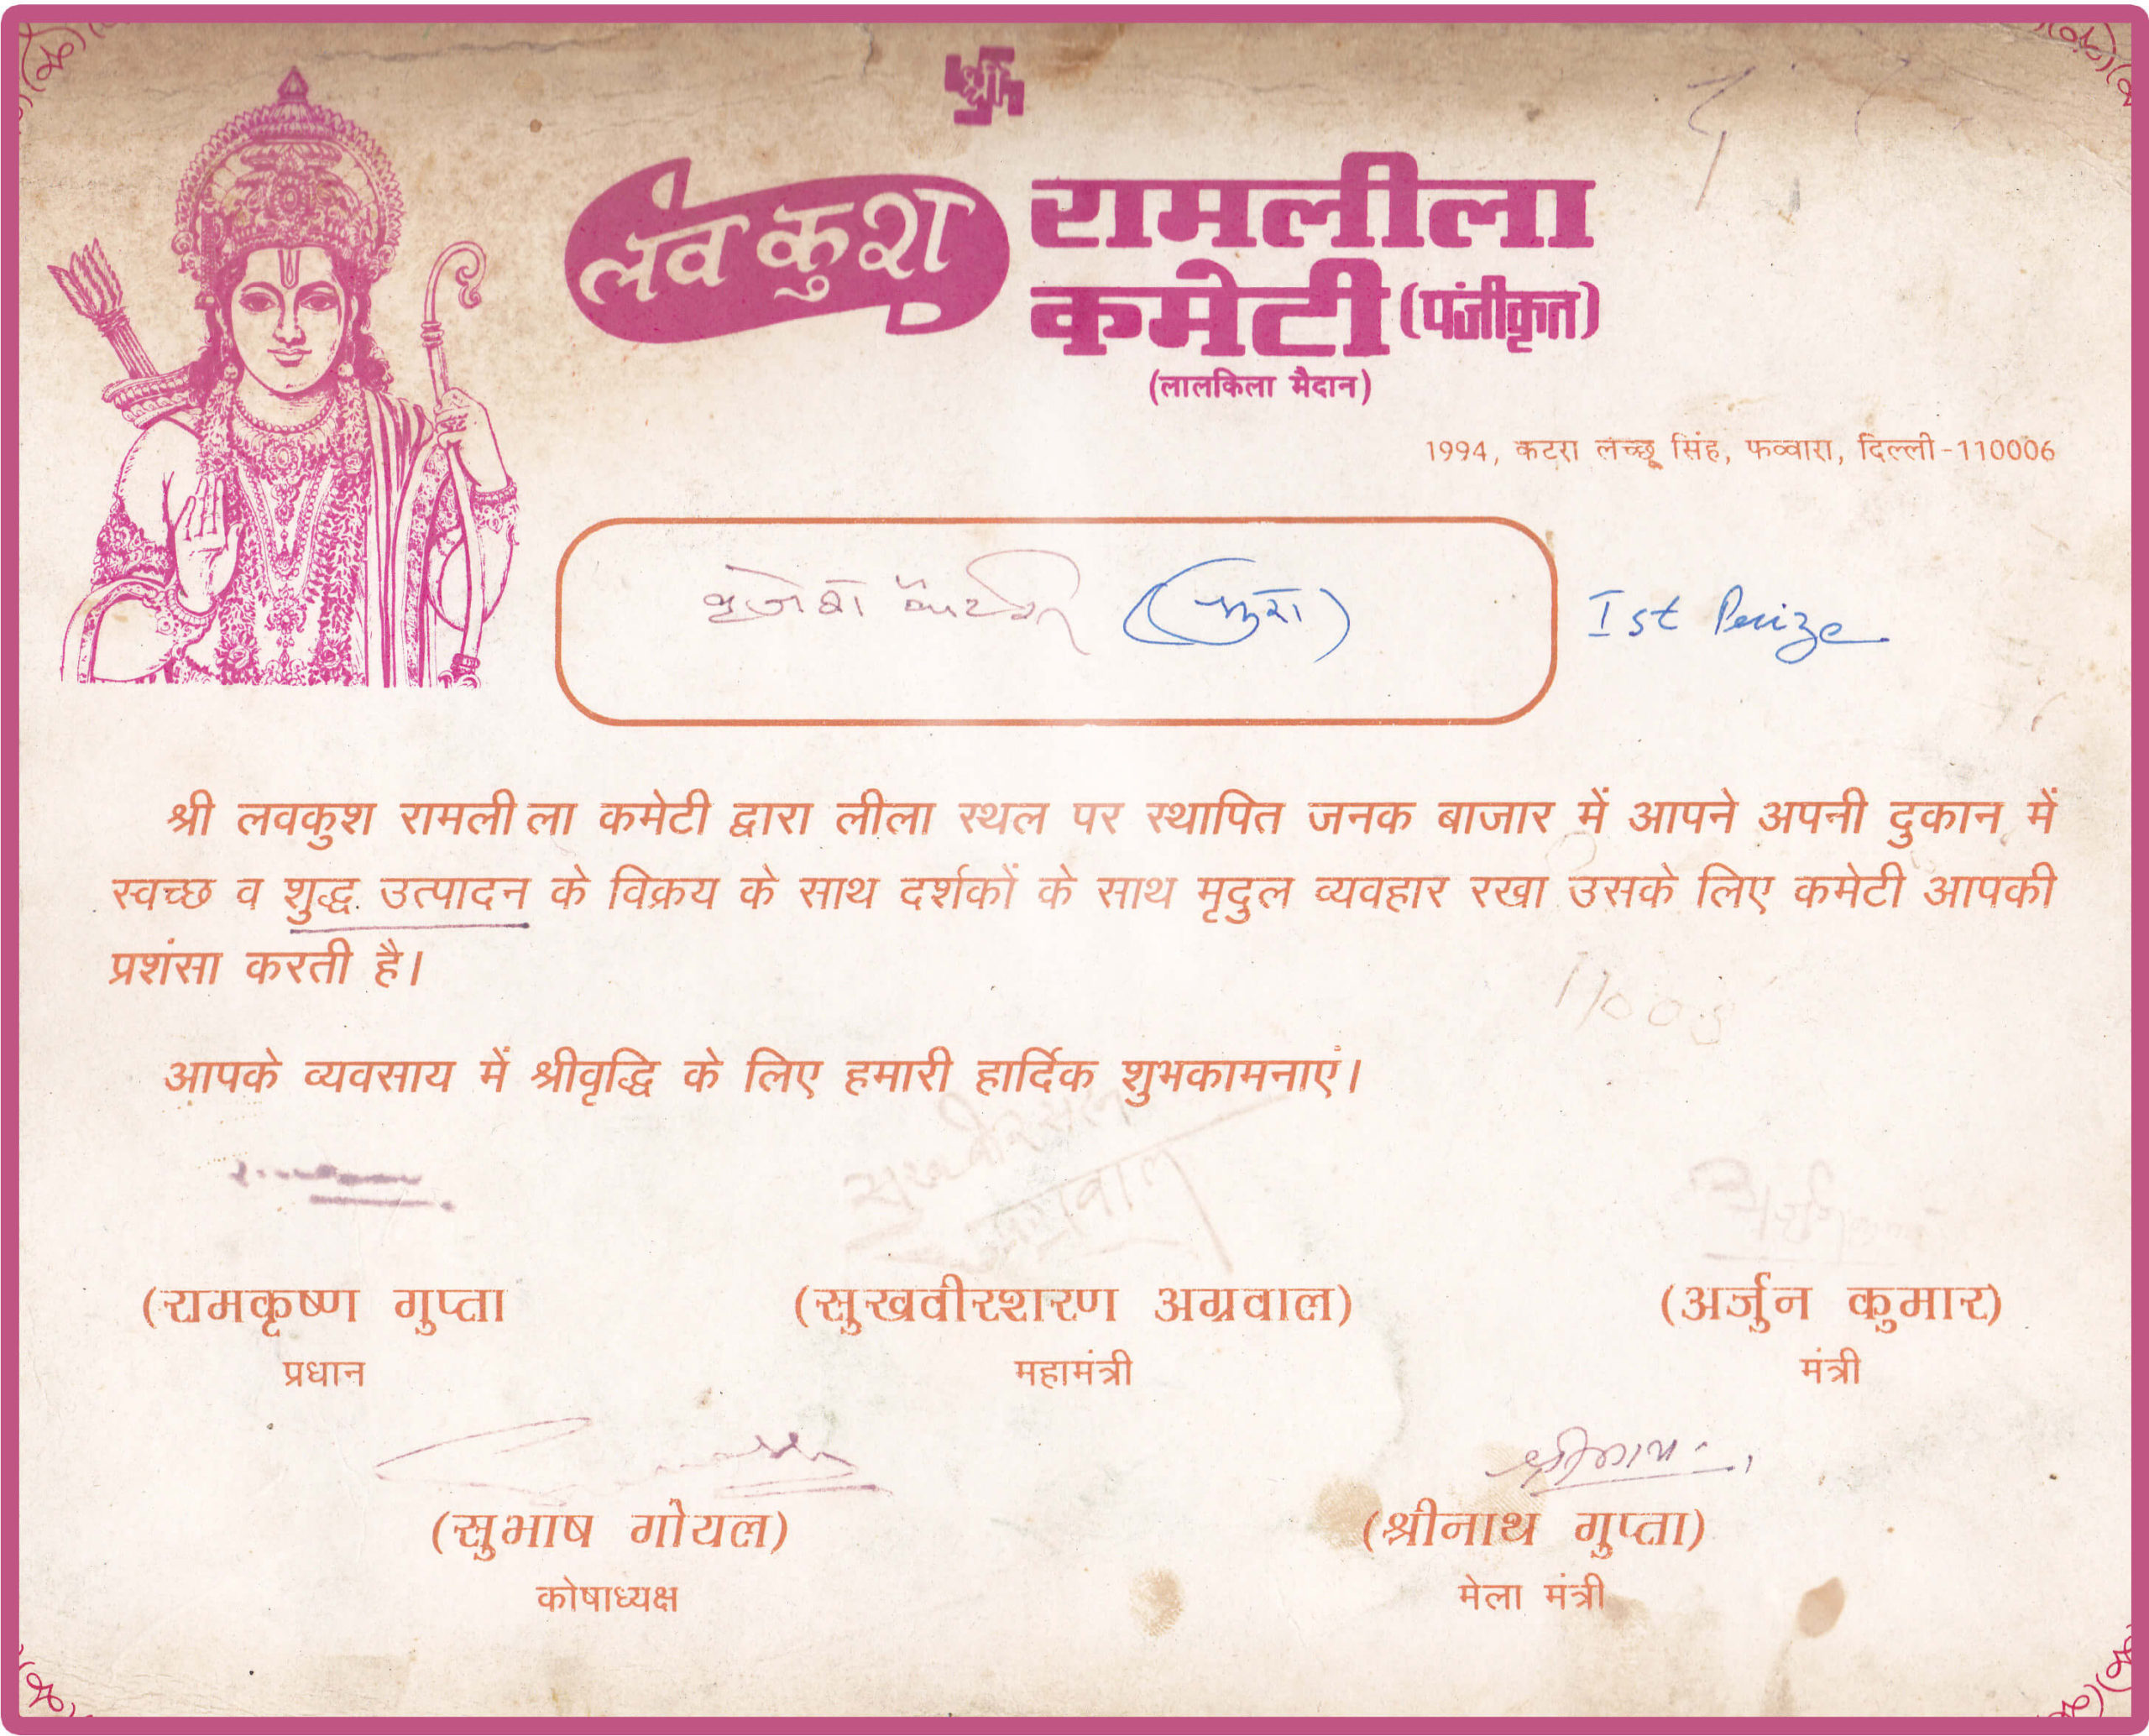 श्री
लवकुश रामलीला
कमेटी (पंजीकृत)
(लालकिला मैदान)
1994, कटरा लच्छू सिंह, फव्वारा, दिल्ली-110006
Ist Prize
श्री लवकुश रामलीला कमेटी द्वारा लीला स्थल पर स्थापित जनक बाजार में आपने अपनी दुकान में
स्वच्छ व शुद्ध उत्पादन के विक्रय के साथ दर्शकों के साथ मृदुल व्यवहार रखा उसके लिए कमेटी आपकी
प्रशंसा करती है।
आपके व्यवसाय में श्रीवृद्धि के लिए हमारी हार्दिक शुभकामनाएं।
सुखवीरसरन
अग्रवाल
(रामकृष्ण गुप्ता (सुखवीरशरण अग्रवाल) (अर्जुन कुमार)
प्रधान महामंत्री मंत्री
श्रीनाथ
(सुभाष गोयल) (श्रीनाथ गुप्ता)
कोषाध्यक्ष मेला मंत्री